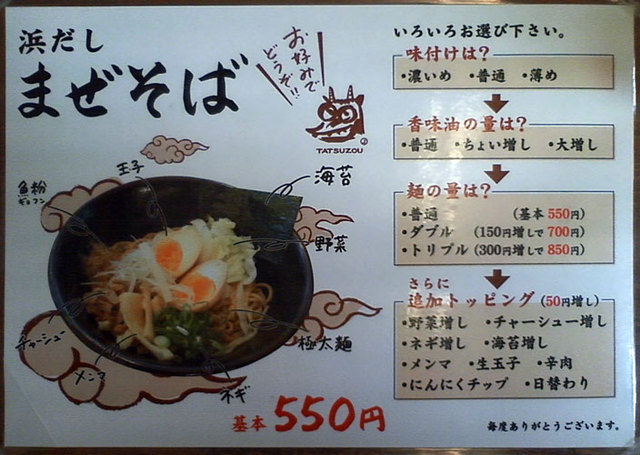 浜だし
まぜそば
お好みで
どうぞ!!
TATSUZOU
玉子
魚粉
ギョフン
海苔
野菜
極太麺
チャーシュー
メンマ
ネギ
基本 550円
いろいろお選び下さい。
味付けは?
・濃いめ ・普通 ・薄め
香味油の量は?
・普通 ・ちょい増し ・大増し
麺の量は?
・普通 (基本 550円)
・ダブル (150円増しで 700円)
・トリプル (300円増しで 850円)
さらに
追加トッピング (50円増し)
・野菜増し ・チャーシュー増し
・ネギ増し ・海苔増し
・メンマ ・生玉子 ・辛肉
・にんにくチップ ・日替わり
毎度ありがとうございます。